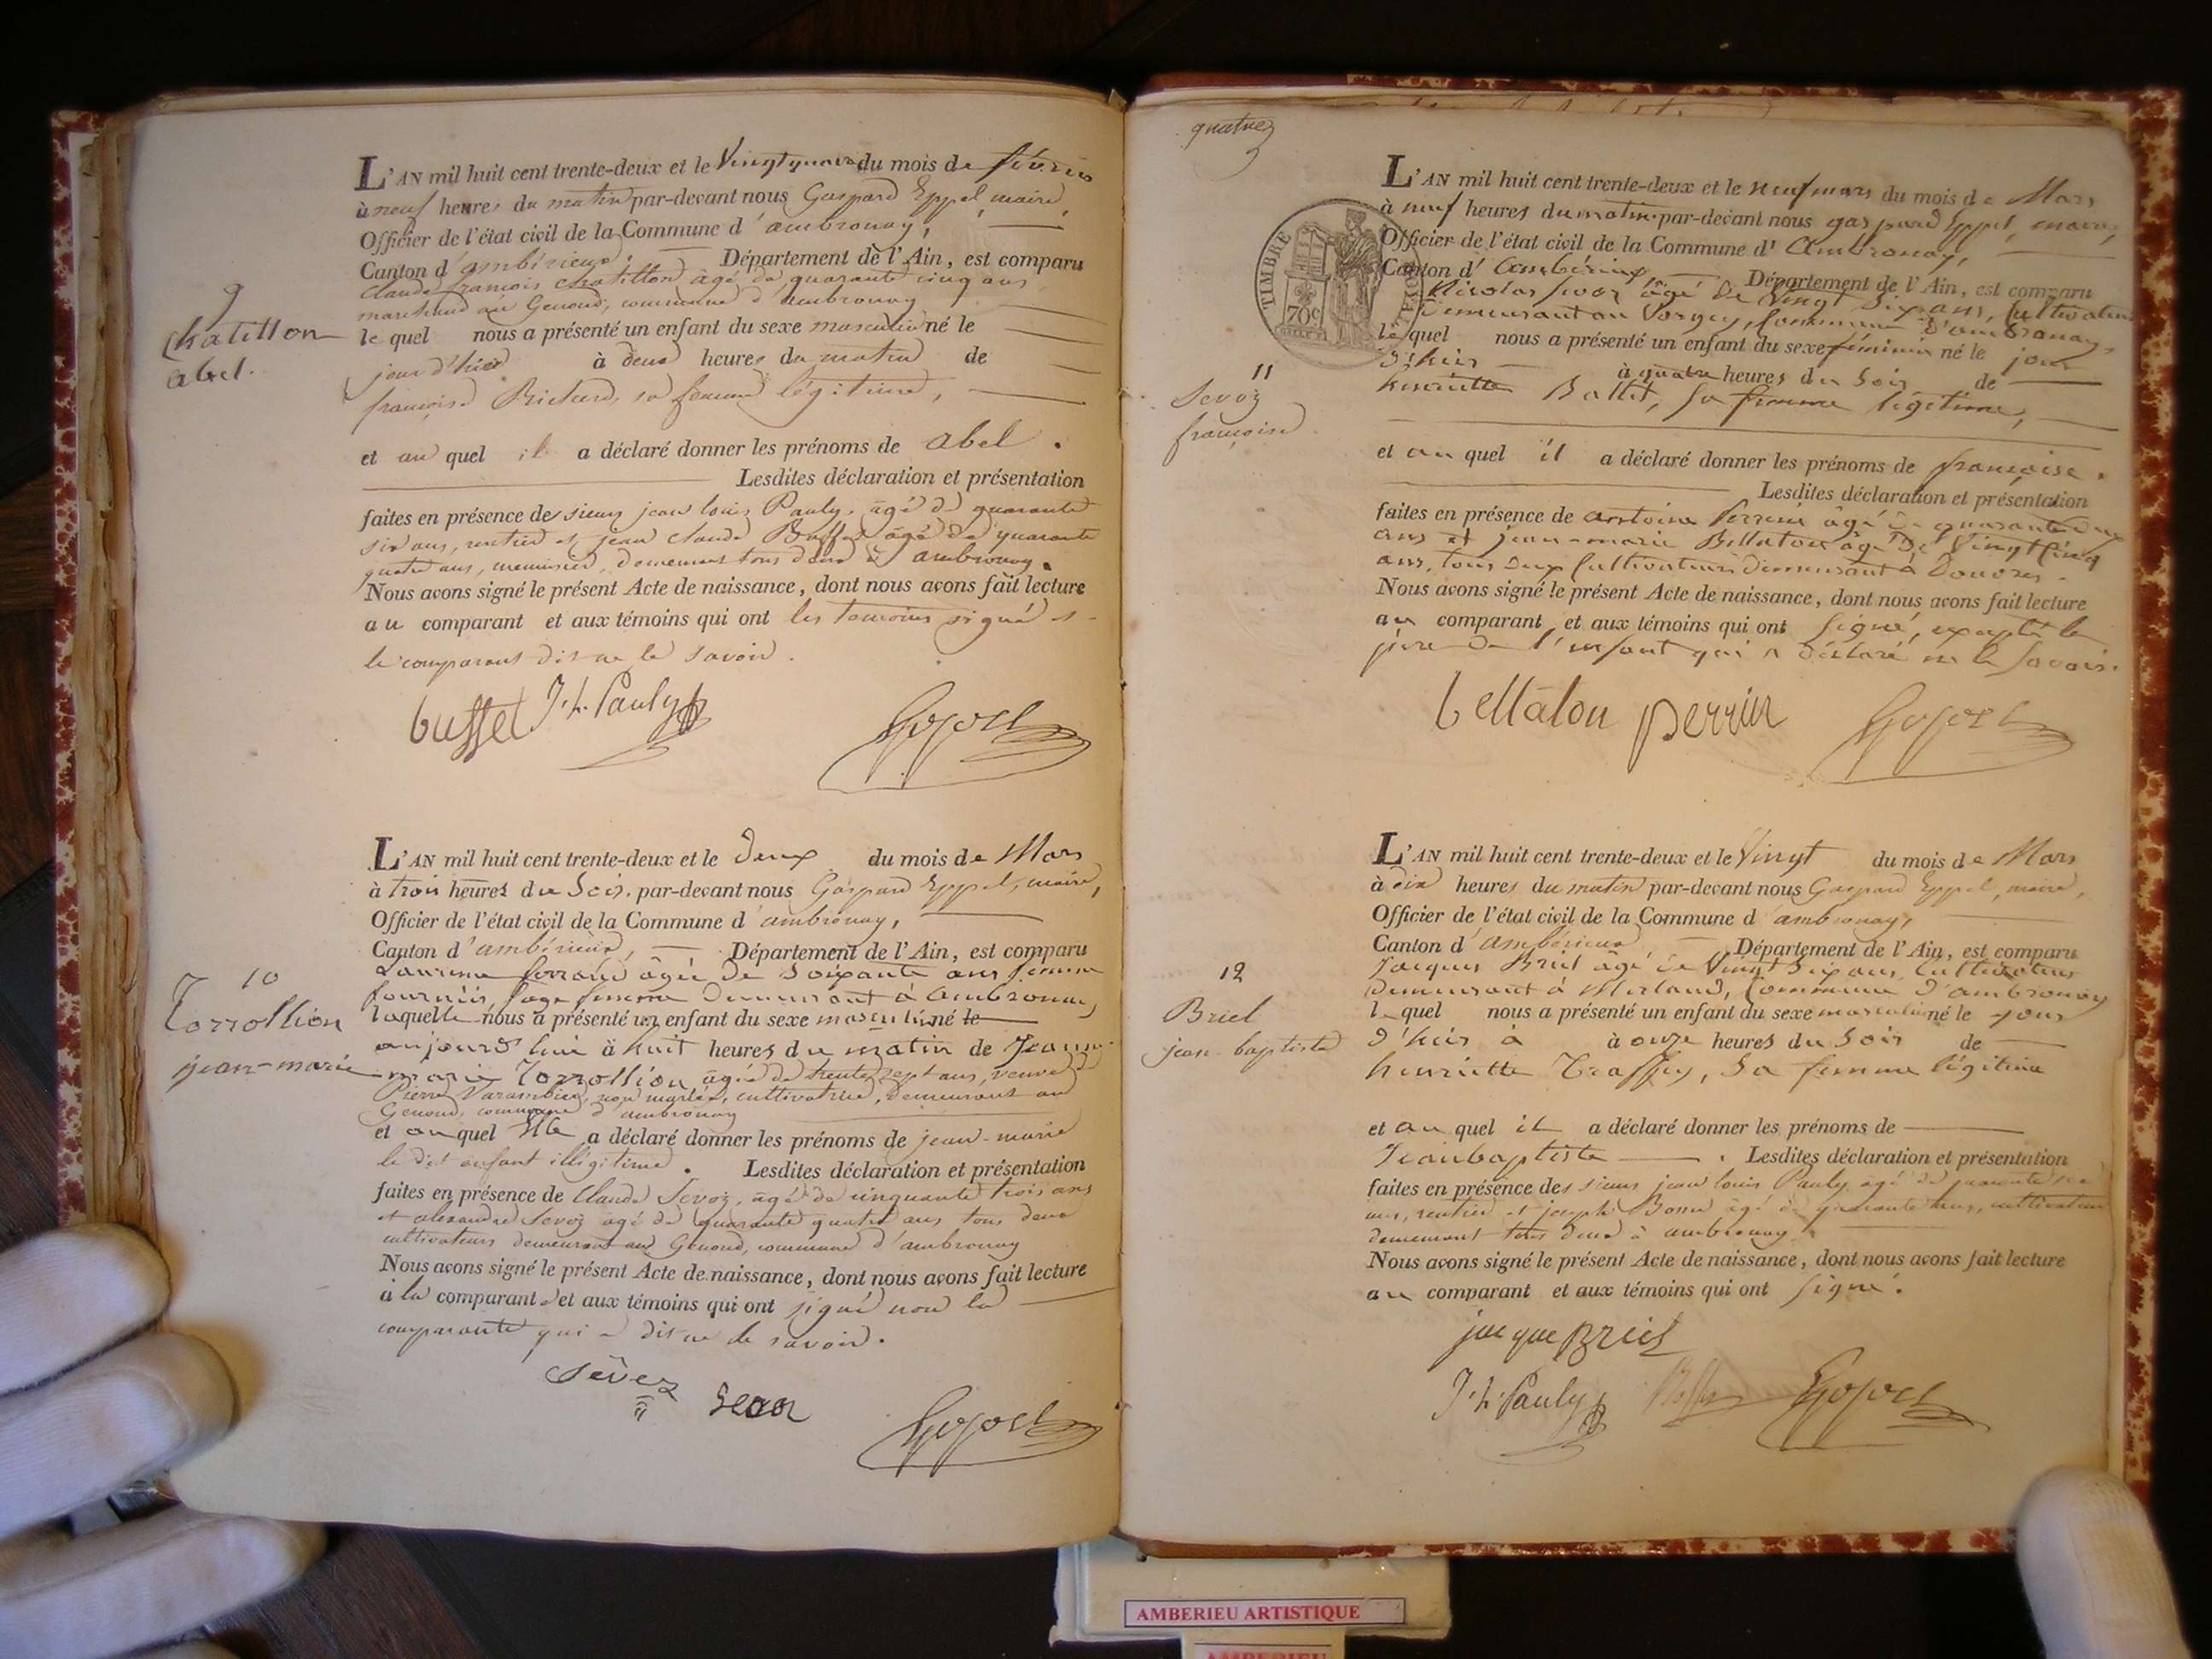 L'AN mil huit cent trente-deux et le Vingt neuf du mois de février
à neuf heures du matin par-devant nous Gaspard Eppel, maire,
Officier de l'état civil de la Commune d'ambronay,
Canton d'ambérieux, Département de l'Ain, est comparu
Claude françois Chatillon âgé de quarante cinq ans
marchand au Genoud, commune d'ambronay
9
Chatillon
abel.
le quel nous a présenté un enfant du sexe masculin né le
jour d'hier à deux heures du matin de
françoise Richard, sa femme légitime,
et au quel il a déclaré donner les prénoms de abel.
Lesdites déclaration et présentation
faites en présence des sieurs jean louis Pauly, âgé de quarante
six ans, rentier et jean claude Buffet âgé de quarante
quatre ans, menuisier, demeurant tous deux à ambronay.
Nous avons signé le présent Acte de naissance, dont nous avons fait lecture
au comparant et aux témoins qui ont les temoins signé et
le comparant dit ne le savoir.
buffet J. L. Pauly
L'AN mil huit cent trente-deux et le deux du mois de Mars
à trois heures du Soir par-devant nous Gaspard Eppel, maire,
Officier de l'état civil de la Commune d'ambronay,
Canton d'ambérieux, Département de l'Ain, est comparu
âgée de Soixante ans femme
Sage femme Demeurant à ambronay
10
Torrollion
jean-marie
laquelle nous a présenté un enfant du sexe masculin né le
aujourd'hui à huit heures du matin de Jeanne
marie Torrollion, âgée de trente sept ans, veuve de
Pierre Varambier, non mariée, cultivatrice, demeurant au
Genoud, commune d'ambronay
et au quel Elle a déclaré donner les prénoms de jean-marie
le dit enfant illégitime. Lesdites déclaration et présentation
faites en présence de Claude Sevoz, âgé de cinquante trois ans
et alexandre Sevoz âgé de quarante quatre ans tous deux
cultivateurs demeurant au Genoud, commune d'ambronay
Nous avons signé le présent Acte de naissance, dont nous avons fait lecture
à la comparante et aux témoins qui ont signé non la
comparante qui a dit ne le savoir.
Sêvez
quatre
L'AN mil huit cent trente-deux et le neuf mars du mois de Mars
à neuf heures du matin par-devant nous gaspard Eppel, maire,
Officier de l'état civil de la Commune d'Ambronay,
Canton d'Ambérieux, Département de l'Ain, est comparu
TIMBRE
70c
Nicolas Sevoz âgé de Vingt Six ans, Cultivateur
Demeurant au Vorgey, Commune d'ambronay,
lequel nous a présenté un enfant du sexe féminin né le jour
D'hier à quatre heures du Soir de
henriette Ballet, Sa femme légitime,
11
Sevoz
françoise
et au quel il a déclaré donner les prénoms de françoise.
Lesdites déclaration et présentation
faites en présence de antoine Perrin âgé de quarante
ans et jean-marie Bellaton âgé de Vingt Cinq
ans, tous deux Cultivateurs demeurant à Douvres.
Nous avons signé le présent Acte de naissance, dont nous avons fait lecture
au comparant et aux témoins qui ont Signé, excepté le
père de l'enfant qui a déclaré ne le Savoir.
bellatou perrin
L'AN mil huit cent trente-deux et le Vingt du mois de Mars
à dix heures du matin par-devant nous Gaspard Eppel, maire,
Officier de l'état civil de la Commune d'ambronay,
Canton d'Ambérieux Département de l'Ain, est comparu
Jacques Briel âgé de Vingt Six ans, Cultivateur
Demeurant à Merland, Commune d'ambronay
12
Briel
jean-baptiste
lequel nous a présenté un enfant du sexe masculin né le jour
d'hier à à onze heures du Soir de
henriette Sa femme légitime
et au quel il a déclaré donner les prénoms de
Jeanbaptiste. Lesdites déclaration et présentation
faites en présence des sieurs jean louis Pauly âgé de quarante six
ans, rentier et joseph âgé de quarante cultivateur
demeurant tous deux à ambronay.
Nous avons signé le présent Acte de naissance, dont nous avons fait lecture
au comparant et aux témoins qui ont Signé.
jacque Briel
J. L. Pauly
AMBERIEU ARTISTIQUE
AMBERIEU